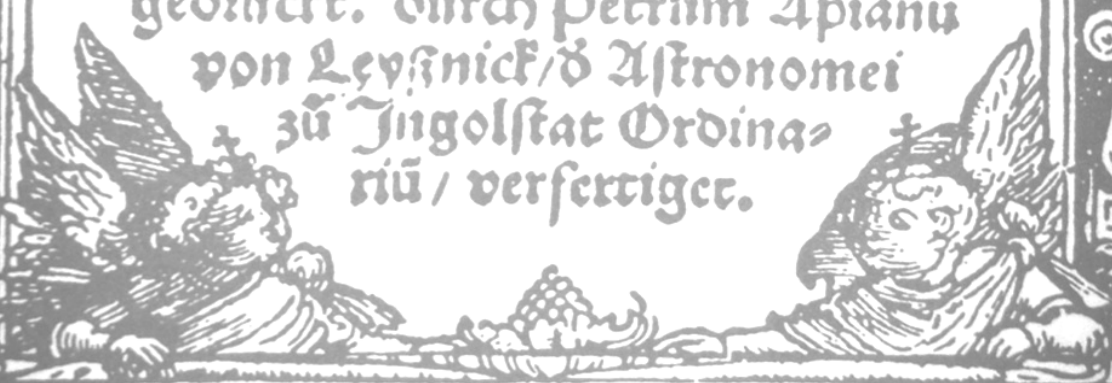 gedruckt. durch Petrum Apianū
von Leyßnick/ď Aſtronomei
zū Jngolſtat Ordina⸗
riū/ verfertiget.